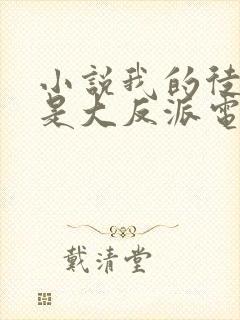 小說我的徒
是大反派電
戴清堂